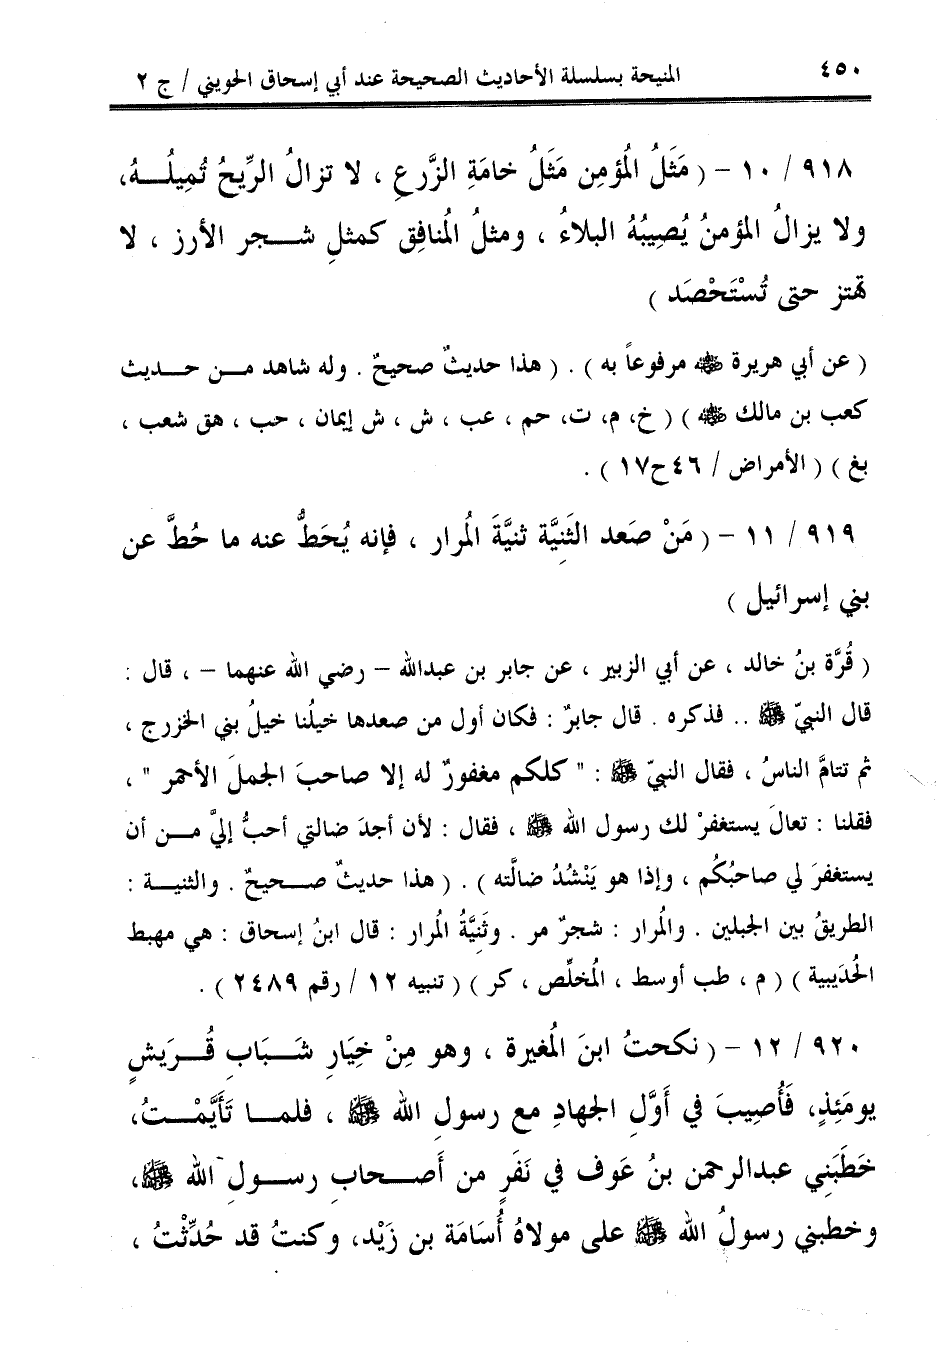 ٤٥٠ المنيحة بسلسلة الأحاديث الصحيحة عند أبي إسحاق الحويني / ج ٢
٩١٨ / ١٠ – ( مَثَلُ المُؤمِن مَثَلُ خامَةِ الزَّرعِ ، لا تزالُ الرِّيحُ تُمِيلُـــهُ،
ولا يزالُ المؤمنُ يُصِيبُهُ البلاءُ ، ومثلُ المُنافِق كمثلِ شـــجر الأرز ، لا
تهتز حتى تُسْتَحْصَد )
( عن أبي هريرة ﷺ مرفوعاً به ) . ( هذا حديثٌ صحيحٌ . وله شاهد مـــن حـــديث
كعب بن مالك ﷺ ) ( خ، م، ت، حم ، عب ، ش ، ش إيمان ، حب ، هق شعب ،
بغ ) ( الأمراض / ٤٦ح١٧ ) .
٩١٩ / ١١ – ( مَنْ صَعد الثَنِيَّة ثنيَّةَ المُرار ، فإنه يُحَطُّ عنه ما حُطَّ عن
بني إسرائيل )
( قُرَّة بنُ خالد ، عن أبي الزبير ، عن جابر بن عبدالله – رضي الله عنهما – ، قال :
قال النبيّ ﷺ .. فذكره . قال جابرٌ : فكان أول من صعدها خيلُنا خيلُ بني الخزرج ،
ثم تتامَّ الناسُ ، فقال النبيّ ﷺ : " كلكم مغفورٌ له إلا صاحبَ الجملَ الأحمر " ،
فقلنا : تعالَ يستغفرْ لك رسول الله ﷺ ، فقال : لأن أجدَ ضالتي أحبُّ إليَّ مـــن أن
يستغفرَ لي صاحبُكُم ، وإذا هو يَنْشُدُ ضالَّته ) . ( هذا حديثٌ صـــحيحٌ . والثنيـــة :
الطريقُ بين الجبلين . والمُرار : شجرٌ مر . وثَنِيَّةُ المُرار : قال ابنُ إسحاق : هي مهبط
الحُدَيبية ) ( م ، طب أوسط ، المُخلِّص ، كر ) ( تنبيه ١٢ / رقم ٢٤٨٩ ) .
٩٢٠ / ١٢ – ( نكحتُ ابنَ المُغيرة ، وهو مِنْ خِيَارِ شَـــبَابِ قُـــرَيشٍ
يومَئِذٍ، فَأُصِيبَ في أَوَّلِ الجهادِ مع رسولِ الله ﷺ ، فلمـــا تَأَيَّمْـــتُ،
خَطَبَني عبدالرحمن بنُ عَوف في نَفَرٍ من أَصـــحابِ رســـولِ الله ﷺ،
وخطبني رسولُ الله ﷺ على مولاهُ أُسَامَة بن زَيْد، وكنتُ قد حُدِّثْتُ ،